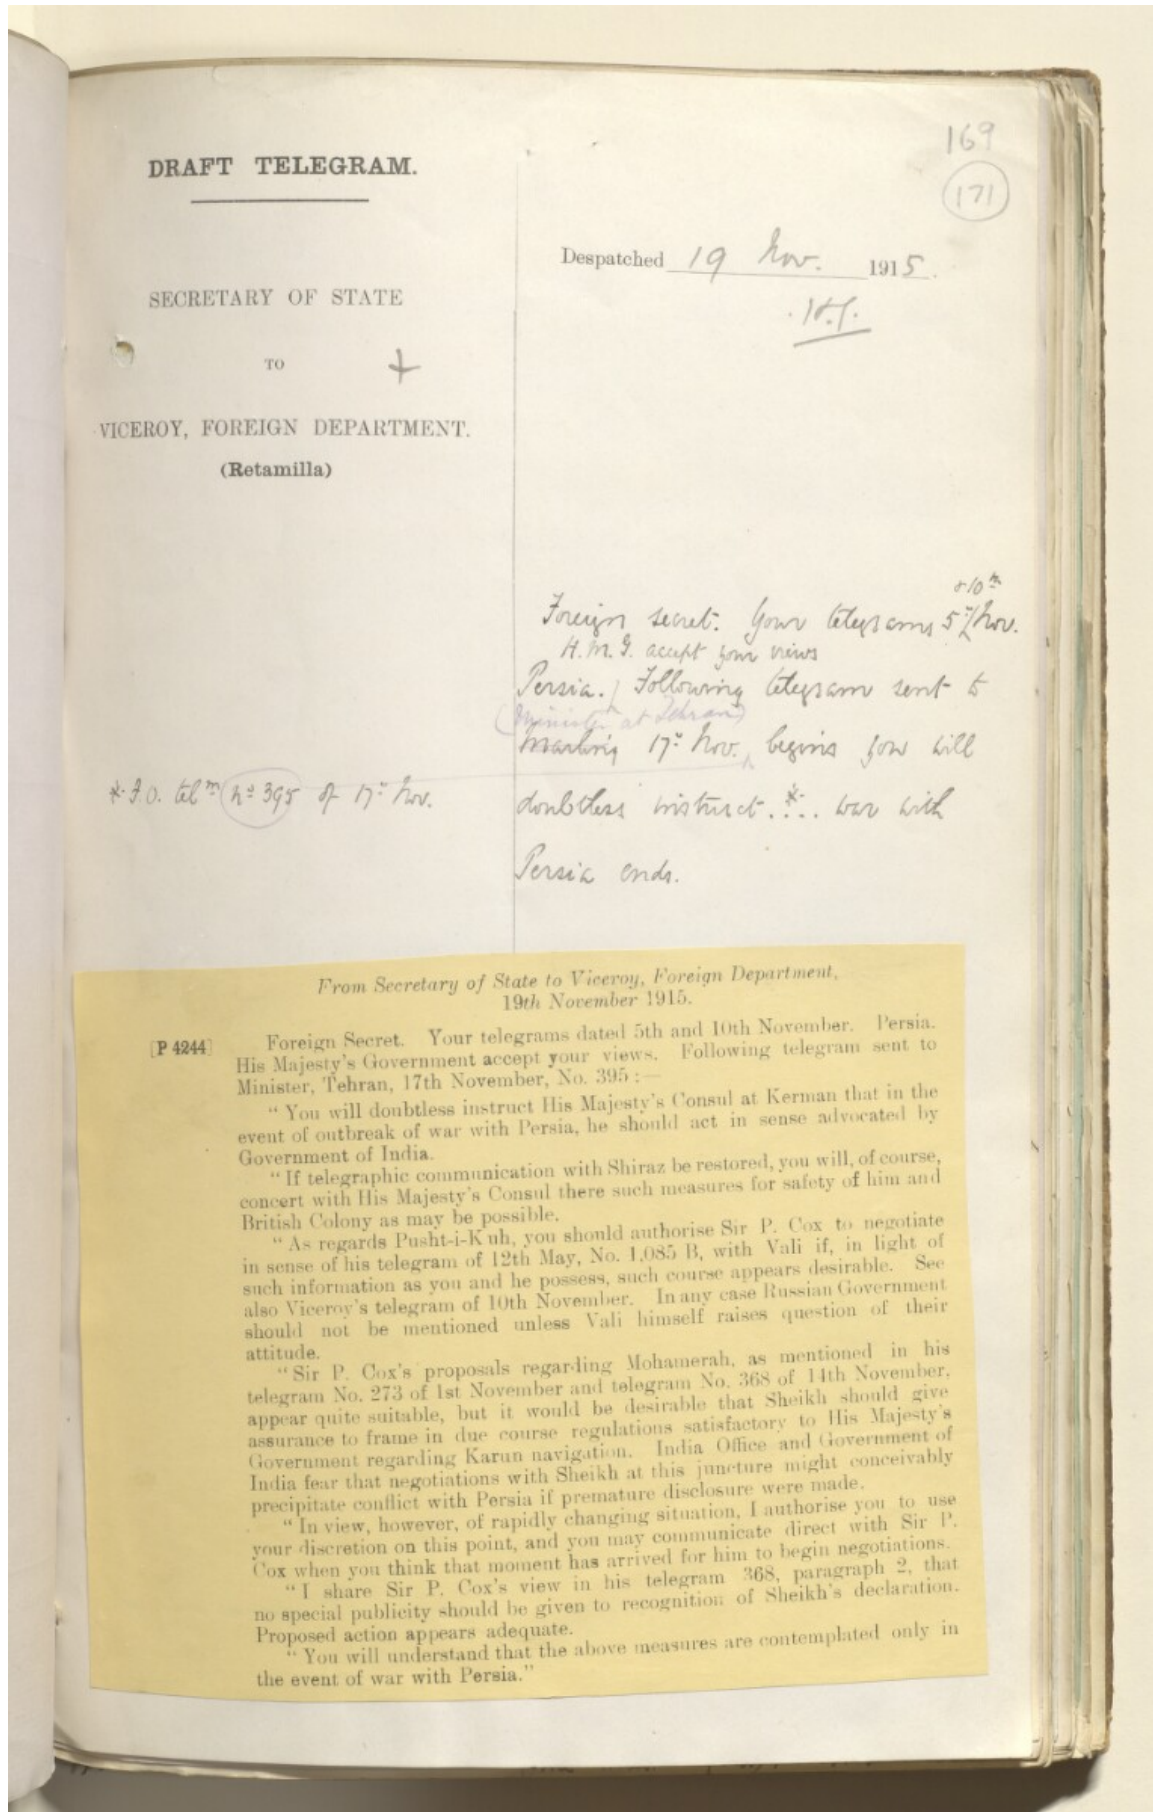 169
171
DRAFT TELEGRAM.
Despatched 19 Nov. 1915.
SECRETARY OF STATE
TO
VICEROY, FOREIGN DEPARTMENT.
(Retamilla)
& 10th
Foreign secret. Your telegrams 5th Nov.
H.M.G. accept your views
Persia. Following telegram sent to
(Minister at Tehran)
Marling 17th Nov. begins you will
* F.O. telm No 395 of 17th Nov.
doubtless instruct . * . . war with
Persia ends.
From Secretary of State to Viceroy, Foreign Department,
19th November 1915.
[P 4244]
Foreign Secret. Your telegrams dated 5th and 10th November. Persia.
His Majesty's Government accept your views. Following telegram sent to
Minister, Tehran, 17th November, No. 395 :—
"You will doubtless instruct His Majesty's Consul at Kerman that in the
event of outbreak of war with Persia, he should act in sense advocated by
Government of India.
"If telegraphic communication with Shiraz be restored, you will, of course,
concert with His Majesty's Consul there such measures for safety of him and
British Colony as may be possible.
"As regards Pusht-i-Kuh, you should authorise Sir P. Cox to negotiate
in sense of his telegram of 12th May, No. 1,085 B, with Vali if, in light of
such information as you and he possess, such course appears desirable. See
also Viceroy's telegram of 10th November. In any case Russian Government
should not be mentioned unless Vali himself raises question of their
attitude.
"Sir P. Cox's proposals regarding Mohamerah, as mentioned in his
telegram No. 273 of 1st November and telegram No. 368 of 14th November,
appear quite suitable, but it would be desirable that Sheikh should give
assurance to frame in due course regulations satisfactory to His Majesty's
Government regarding Karun navigation. India Office and Government of
India fear that negotiations with Sheikh at this juncture might conceivably
precipitate conflict with Persia if premature disclosure were made.
"In view, however, of rapidly changing situation, I authorise you to use
your discretion on this point, and you may communicate direct with Sir P.
Cox when you think that moment has arrived for him to begin negotiations.
"I share Sir P. Cox's view in his telegram 368, paragraph 2, that
no special publicity should be given to recognition of Sheikh's declaration.
Proposed action appears adequate.
"You will understand that the above measures are contemplated only in
the event of war with Persia."